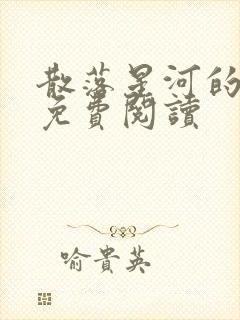 散落星河的
免費閱讀
喻貴英